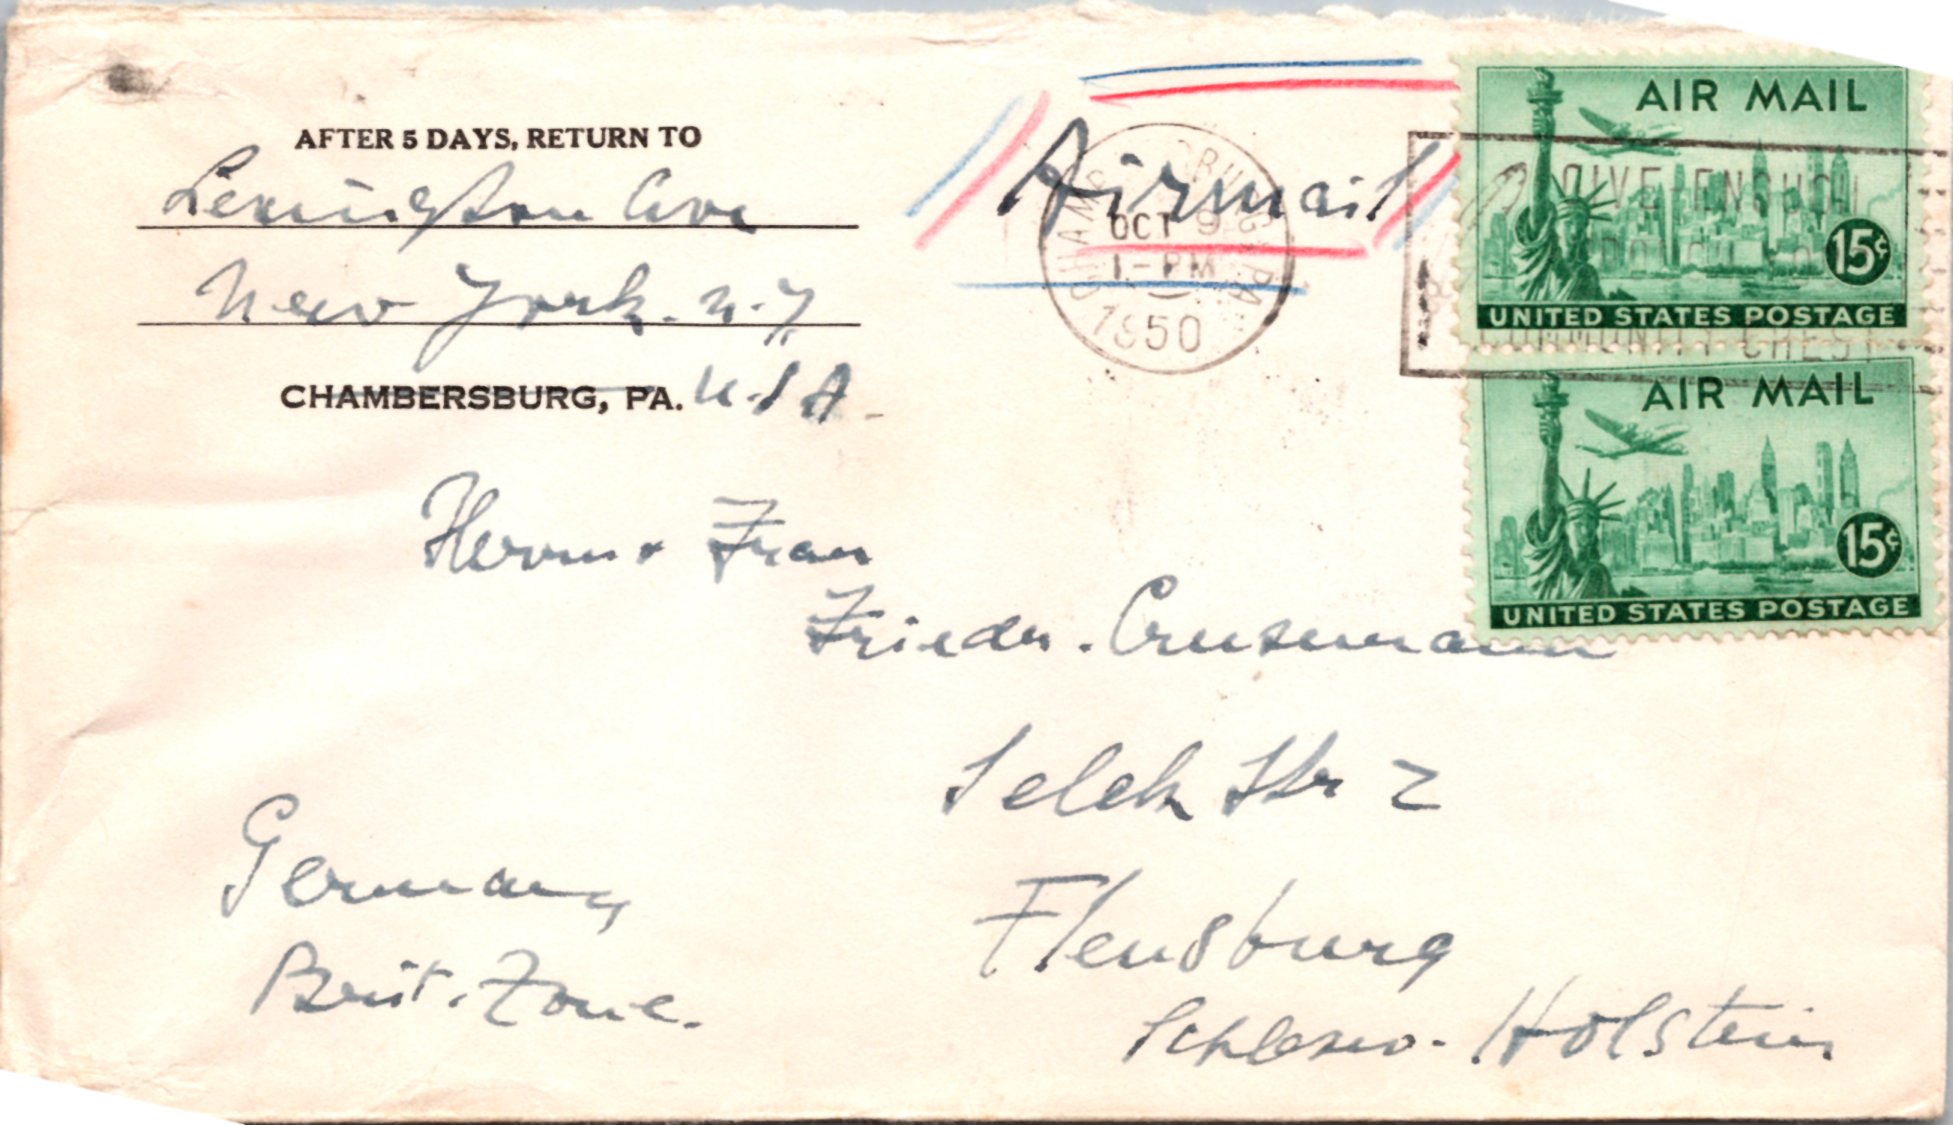 AFTER 5 DAYS, RETURN TO
Lexington Ave
New York. N.Y
CHAMBERSBURG, PA. U.S.A.
Airmail
CHAMBERSBURG, PA.
OCT 9
1-PM
1950
GIVE ENOUGH
COMMUNITY CHEST
AIR MAIL
15¢
UNITED STATES POSTAGE
AIR MAIL
15¢
UNITED STATES POSTAGE
Herrn + Frau
Frieder. Crusemann
Selck Str 2
Flensburg
Schlesw. Holstein
Germany
Brit. Zone.